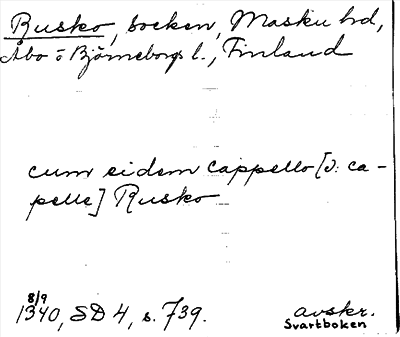 Rusko, socken, Masku hd,
Åbo o Björneborgs l., Finland
cum eidem cappello [ɔ: ca-
pelle] Rusko
8/9
1340, SD 4, s. 739.
avskr.
Svartboken